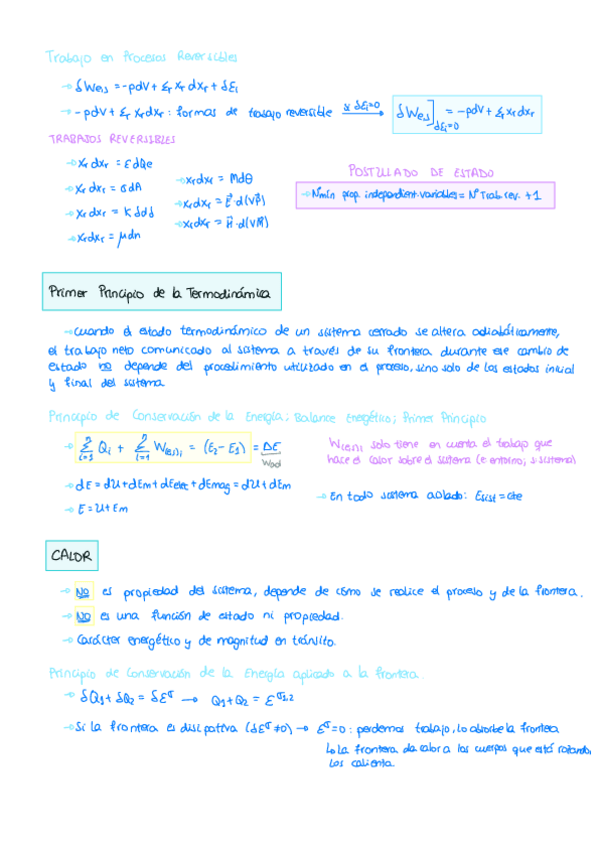 Trabajo en Procesos Reversibles
→ δWe/s = -pdV + Σr Xr dxr + δEi
→ -pdV + Σr Xr dxr : formas de trabajo reversible si δEi=0 → δWe/s]δEi=0 = -pdV + Σr Xr dxr
TRABAJOS REVERSIBLES
→ Xr dxr = EdQe
→ Xr dxr = σdA
→ Xr dxr = Kδdδ
→ Xr dxr = μdn
→ Xr dxr = Mdθ
→ Xr dxr = E⃗·d(VP⃗)
→ Xr dxr = H⃗·d(VM⃗)
POSTULADO DE ESTADO
→ Nºmín prop. independient. variables = Nº Trab. rev. + 1
Primer Principio de la Termodinámica
→ Cuando el estado termodinámico de un sistema cerrado se altera adiabáticamente,
el trabajo neto comunicado al sistema a través de su frontera durante ese cambio de
estado no depende del procedimiento utilizado en el proceso, sino solo de los estados inicial
y final del sistema
Principio de Conservación de la Energía; Balance Energético; Primer Principio
→ Σ Qi + Σ W(e/s)i = (E2 - E1) = ΔE
Wad
W(e/s)i solo tiene en cuenta el trabajo que
hace el calor sobre el sistema (e: entorno; s: sistema)
→ dE = dU + dEm + dEelec + dEmag = dU + dEm
→ E = U + Em
→ En todo sistema aislado: Esist = cte
CALOR
→ NO es propiedad del sistema, depende de cómo se realice el proceso y de la frontera.
→ NO es una función de estado ni propiedad.
→ Carácter energético y de magnitud en tránsito.
Principio de Conservación de la Energía aplicado a la frontera.
→ δQ1 + δQ2 = δE^σ → Q1 + Q2 = E^σ1,2
→ Si la frontera es disipativa (δE^σ ≠ 0) → E^σ = 0 : perdemos trabajo, lo absorbe la frontera
↳ La frontera da calor a los cuerpos que está rozando,
los calienta.